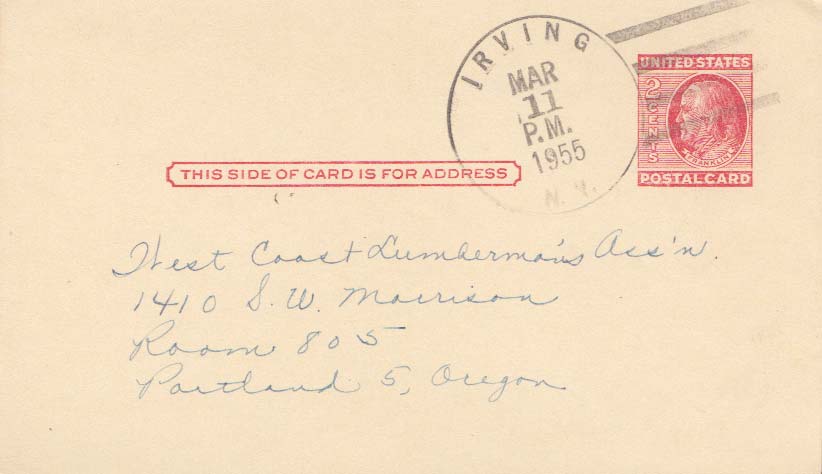 IRVING
MAR
11
P.M.
1955
N.Y.
UNITED STATES
2 CENTS
FRANKLIN
POSTAL CARD
THIS SIDE OF CARD IS FOR ADDRESS
West Coast Lumberman's Ass'n.
1410 S.W. Morrison
Room 805
Portland 5, Oregon